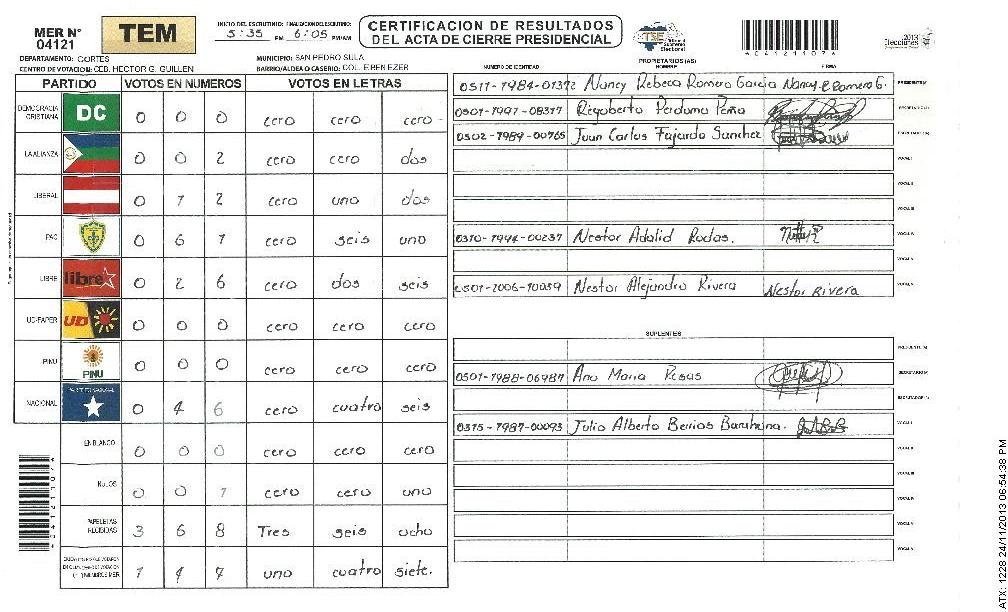 MER N° 04121
TEM
INICIO DEL ESCRUTINIO: 5:35 PM FINALIZACION DEL ESCRUTINIO: 6:05 PM/AM
CERTIFICACION DE RESULTADOS
DEL ACTA DE CIERRE PRESIDENCIAL
TSE Tribunal Supremo Electoral
4041211074
Elecciones 2013
DEPARTAMENTO: CORTES
MUNICIPIO: SAN PEDRO SULA
CENTRO DE VOTACION: CEB. HECTOR G. GUILLEN
BARRIO/ALDEA O CASERIO: COL. EBENEZER
PARTIDO VOTOS EN NUMEROS VOTOS EN LETRAS
DEMOCRACIA CRISTIANA DC 0 0 0 cero cero cero
LA ALIANZA 0 0 2 cero cero dos
LIBERAL 0 1 2 cero uno dos
PAC 0 6 1 cero seis uno
LIBRE libre 0 2 6 cero dos seis
UD-FAPER UD 0 0 0 cero cero cero
PINU PINU 0 0 0 cero cero cero
NACIONAL 0 4 6 cero cuatro seis
EN BLANCO 0 0 0 cero cero cero
NULOS 0 0 1 cero cero uno
PAPELETAS RECIBIDAS 3 6 8 Tres seis ocho
1 4 7 uno cuatro siete.
PROPIETARIOS (AS)
NUMERO DE IDENTIDAD NOMBRE FIRMA
0511-1984-01372 Nancy Rebeca Romero Garcia Nancy R Romero G. PRESIDENTE(A)
0501-1997-08317 Rigoberto Perdomo Peña SECRETARIO(A)
0502-1989-00765 Juan Carlos Fajardo Sanchez ESCRUTADOR(A)
VOCAL I
VOCAL II
VOCAL III
0310-1994-00237 Nestor Adalid Rodas. VOCAL IV
VOCAL V
0501-2006-10059 Nestor Alejandro Rivera Nestor Rivera
SUPLENTES
PRESIDENTE(A)
0501-1988-06987 Ana Maria Rosas SECRETARIO(A)
ESCRUTADOR(A)
0315-1987-00093 Julio Alberto Berrios Barahona. VOCAL I
VOCAL II
VOCAL III
VOCAL IV
VOCAL V
ATX: 1228 24/11/2013 06:54:38 PM